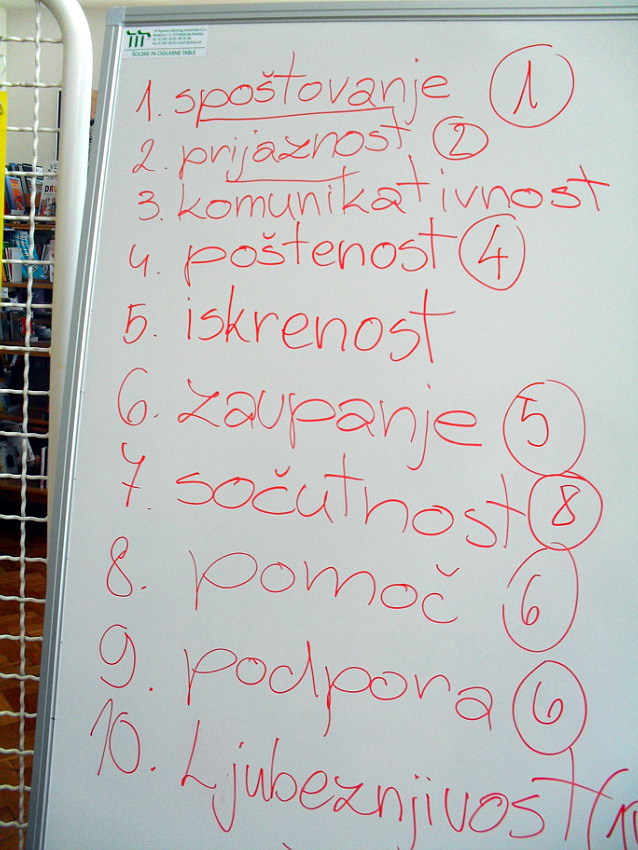 ŠOLSKE IN OGLASNE TABLE
1. spoštovanje 1
2. prijaznost 2
3. komunikativnost
4. poštenost 4
5. iskrenost
6. zaupanje 5
7. sočutnost 8
8. pomoč 6
9. podpora 6
10. Ljubeznjivost